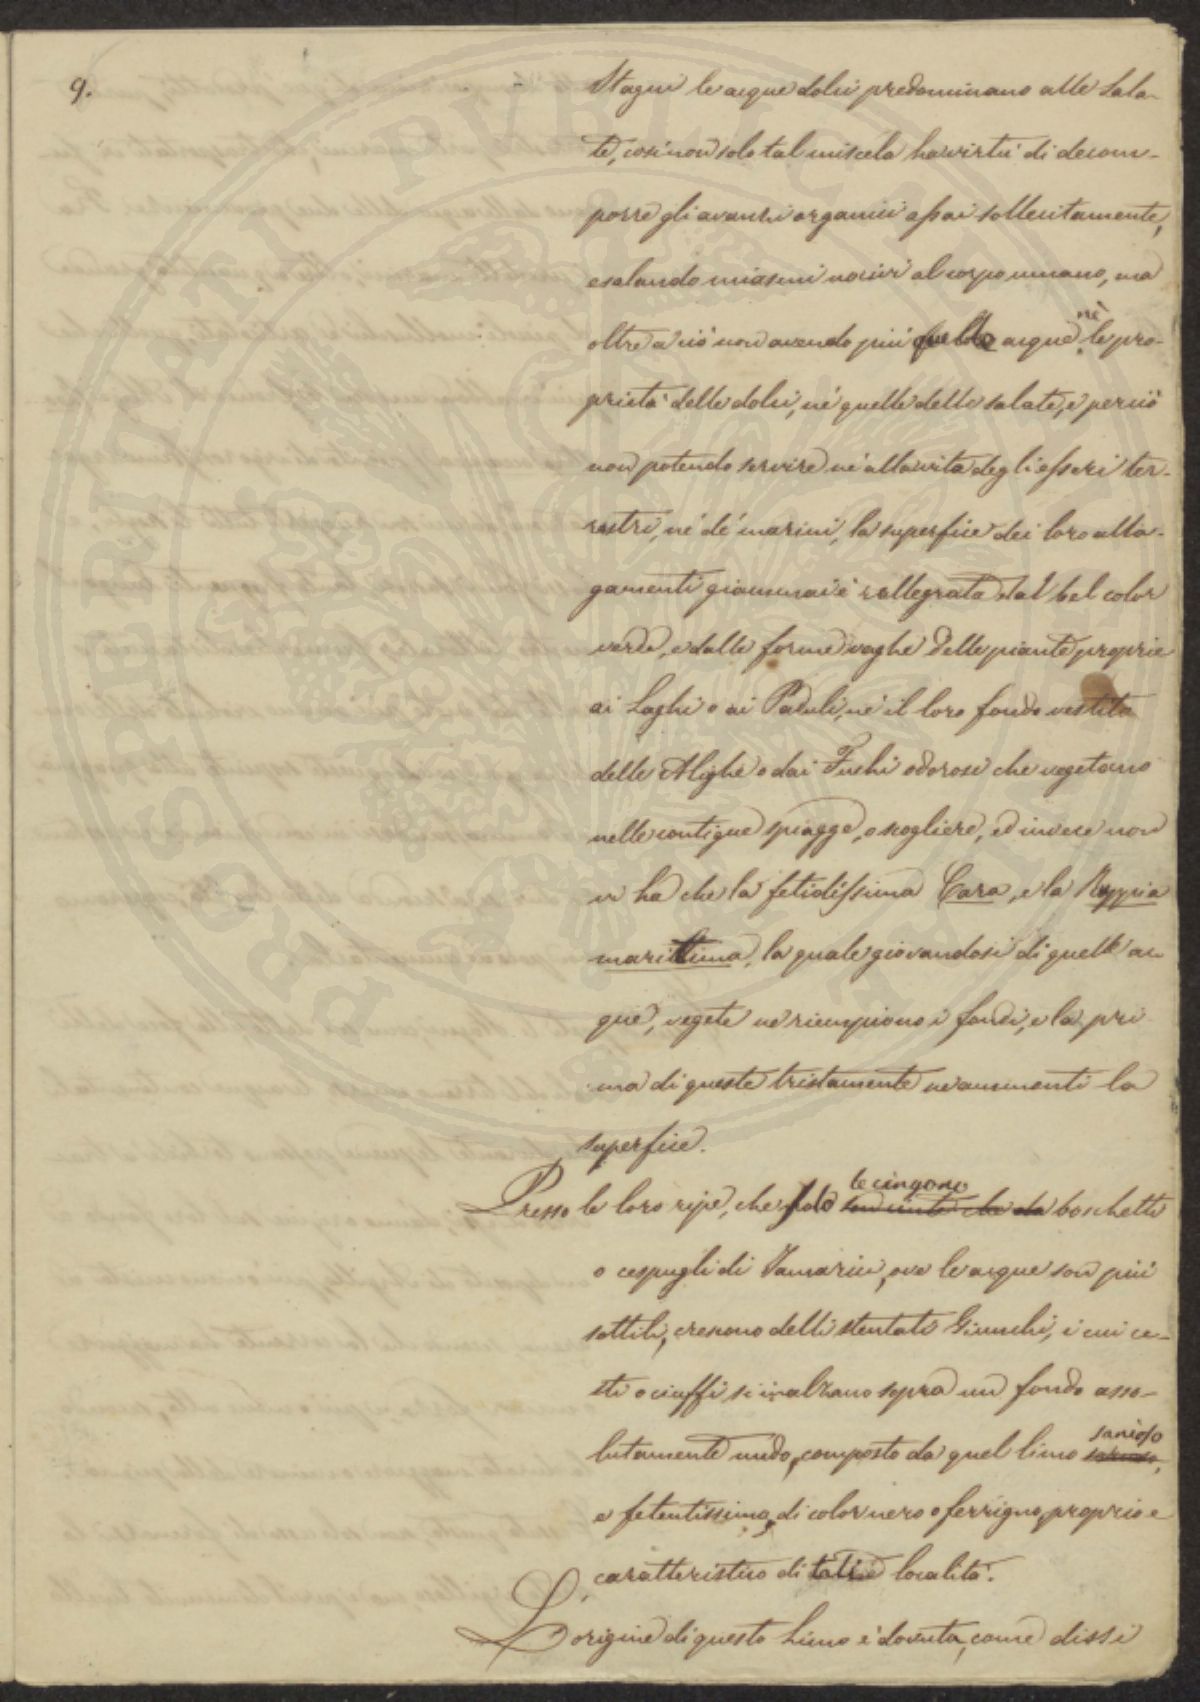 9.
Stagni le acque dolci predominano alle sala-
te, così non solo tal miscela ha virtù di decom-
porre gli avanzi organici assai sollecitamente,
esalando miasmi nocivi al corpo umano, ma
oltre a ciò non avendo più quelle acque nè le pro-
prietà delle dolci, nè quelle delle salate, e perciò
non potendo servire nè alla vita degli esseri ter-
restri, nè de' marini, la superfice dei loro alla-
gamenti giammai è rallegrata dal bel color
verde, e dalle forme vaghe delle piante proprie
ai Laghi o ai Paduli, nè il loro fondo vestito
delle Alighe o dai Fuchi odorosi che vegetano
nelle contigue spiagge, o scogliere, ed invece non
vi ha che la fetidissima Cara, e la Ruppia
marittima, la quale giovandosi di quelle ac
que, vegete ne riempiono i fondi, e la pri
ma di queste tristamente ne ammenti la
superfice.
Presso le loro ripe, che solo le cingono son cinte che da boschetti
o cespugli di Tamarici, ove le acque son più
sottili, crescono delli stentati Giunchi, i cui ce-
sti o ciuffi si inalzano sopra un fondo asso-
lutamente nudo, composto da quel limo sanioso
e fetentissimo, di color nero o ferrigno, proprio e
caratteristico di tali località.
L'origine di questo Limo è dovuta, come dissi
PERINATI PVBLICII